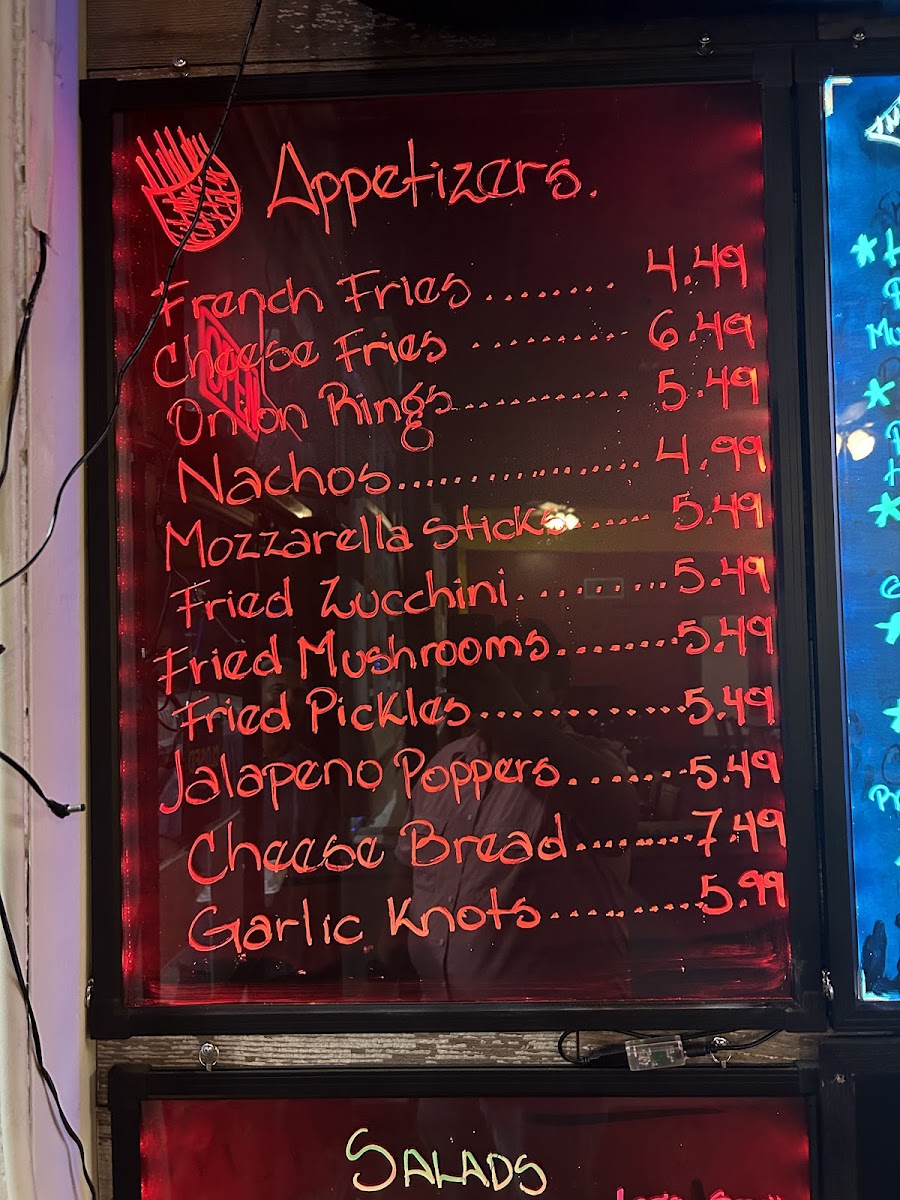 Appetizers.
French Fries ........ 4.49
Cheese Fries .......... 6.49
Onion Rings ........... 5.49
Nachos ................ 4.99
Mozzarella Sticks ...... 5.49
Fried Zucchini .......... 5.49
Fried Mushrooms ........ 5.49
Fried Pickles ............ 5.49
Jalapeno Poppers ........ 5.49
Cheese Bread ......... 7.49
Garlic Knots ......... 5.99
OPEN
SALADS